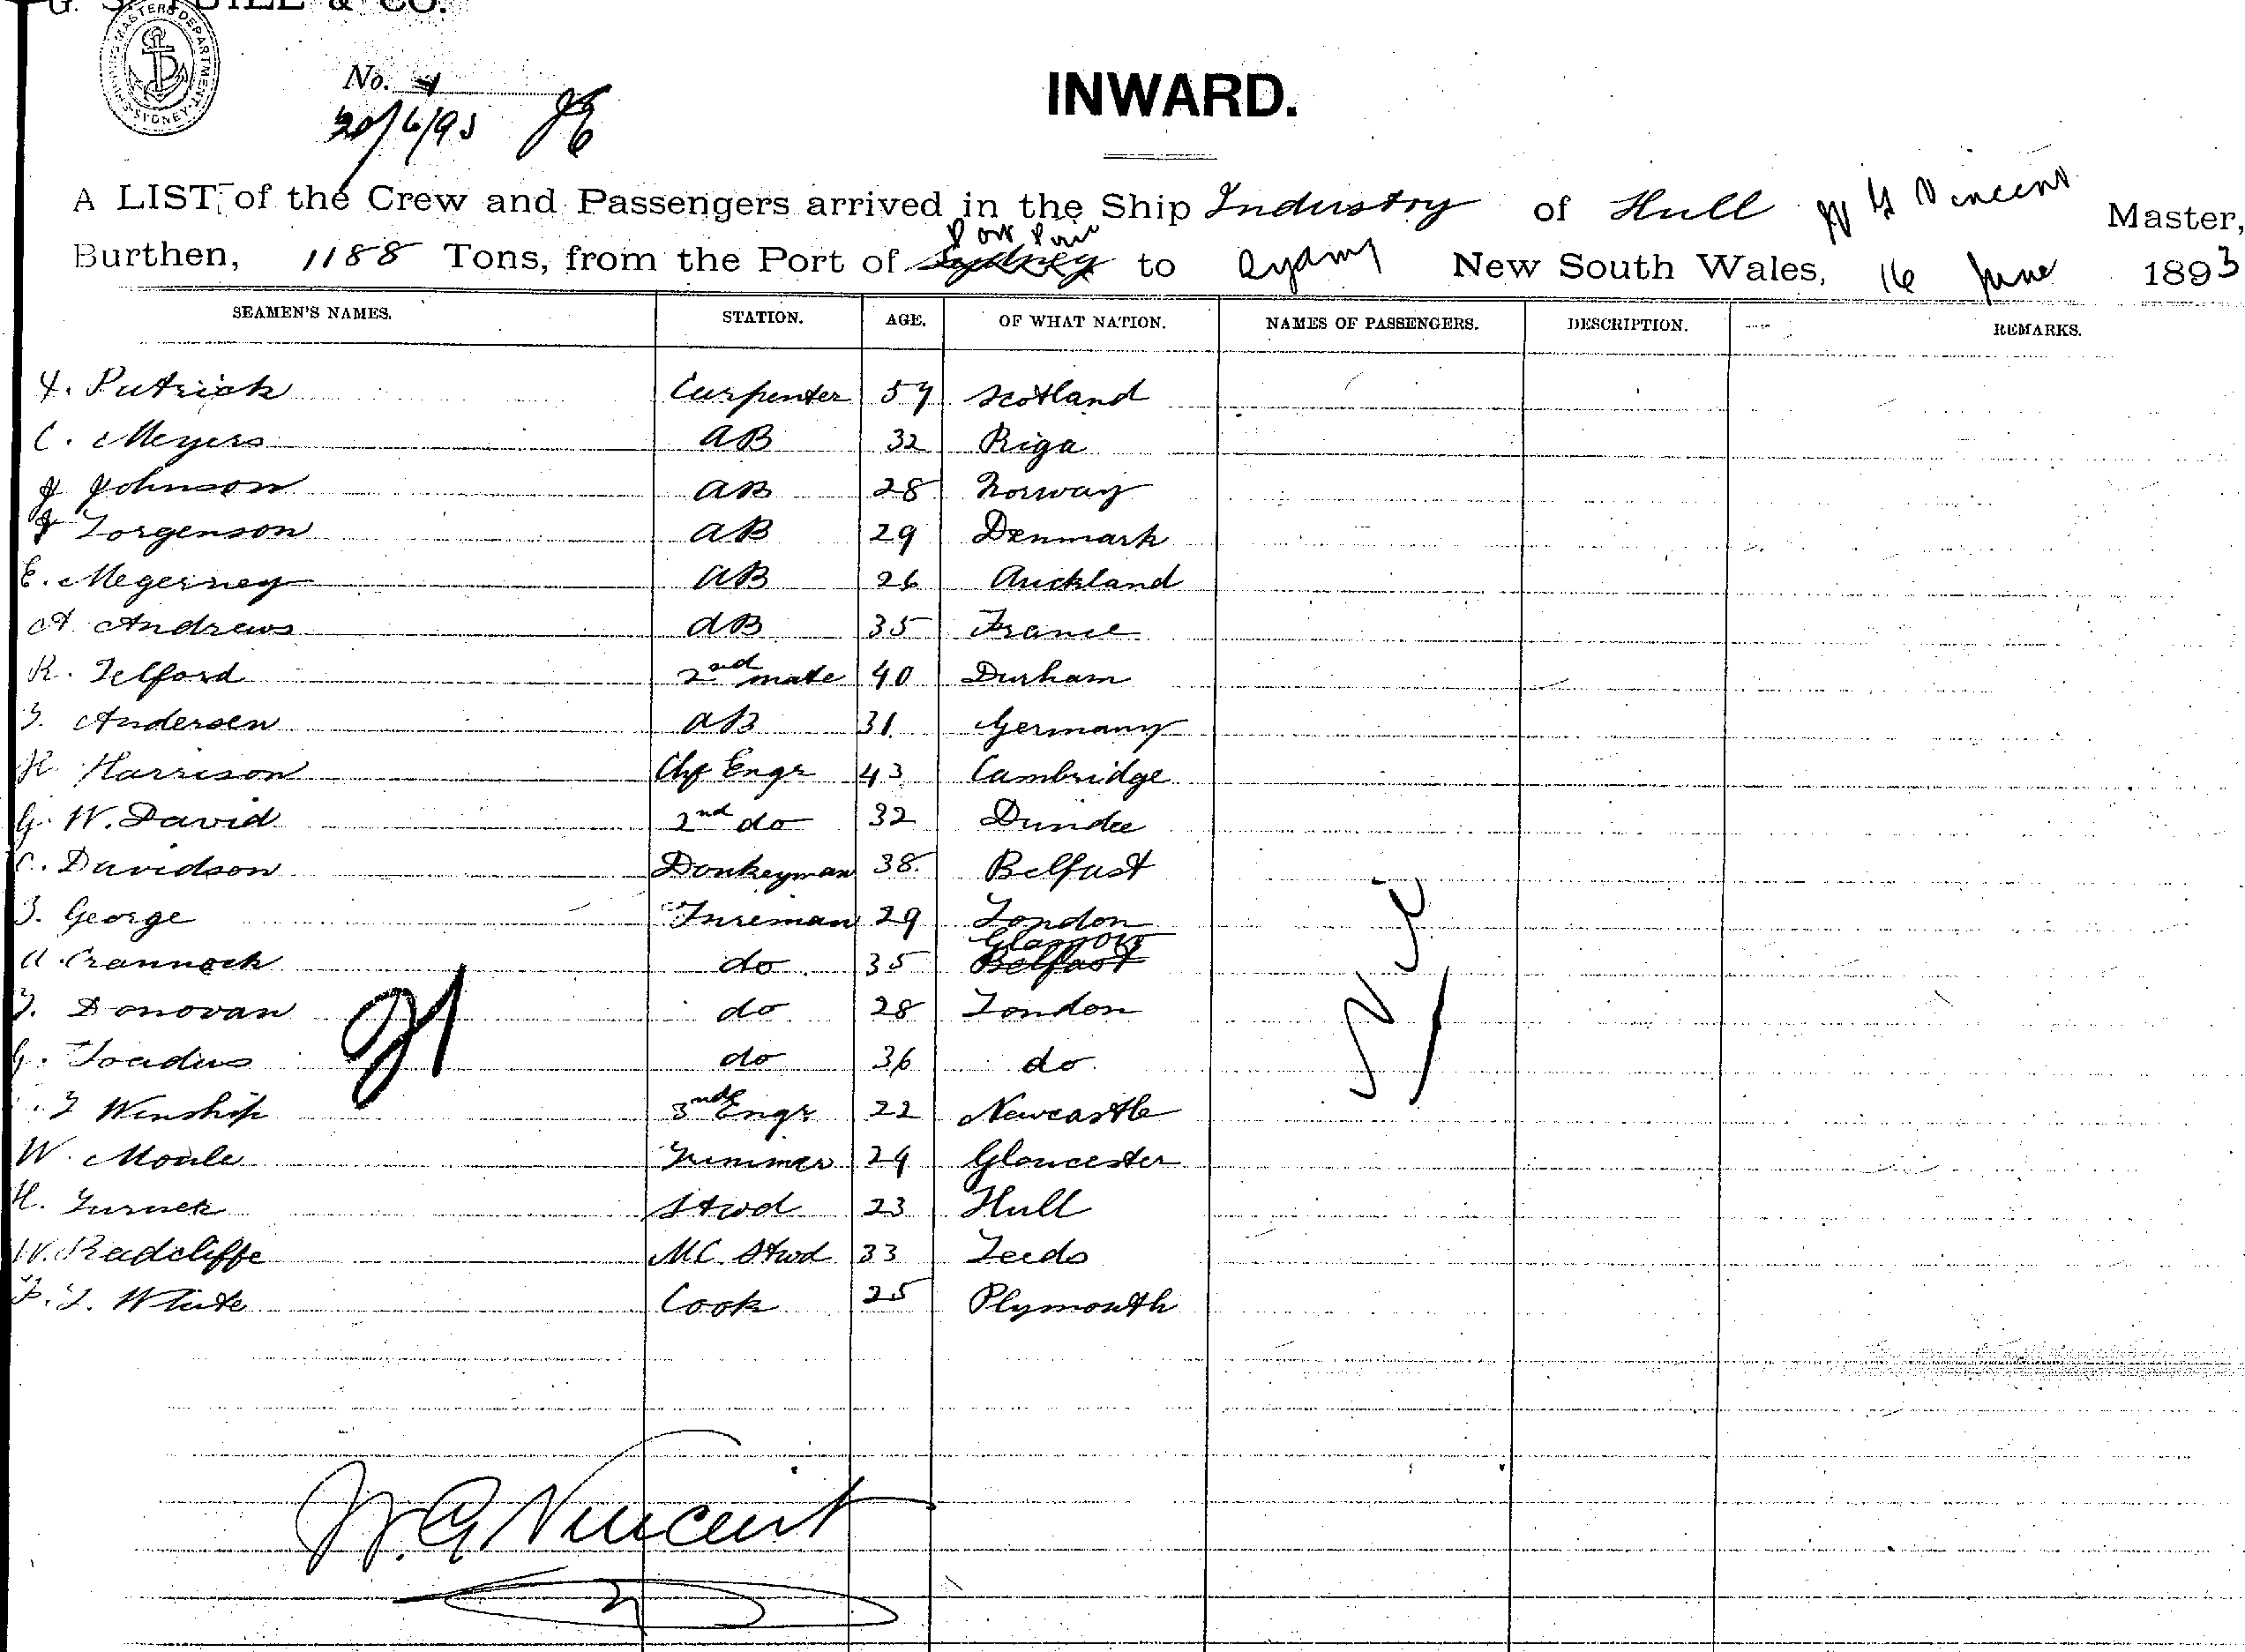 & CO.
SHIPPING MASTERS DEPARTMENT SYDNEY
No.
20/6/93
INWARD.
A LIST, of the Crew and Passengers arrived in the Ship Industry of Hull W G Vincent Master,
Port Pirie
Burthen, 1188 Tons, from the Port of Sydney to New South Wales, 16 June 1893
SEAMEN'S NAMES. STATION. AGE. OF WHAT NATION. NAMES OF PASSENGERS. DESCRIPTION. REMARKS.
Patrick Carpenter 57 Scotland
C. Meyers AB 32 Riga
J Johnson AB 28 Norway
J Torgenson AB 29 Denmark
E. Megerney AB 26 Auckland
A Andrews AB 35 France
R. Telford 2nd mate 40 Durham
Andersen AB 31 Germany
H. Harrison Chf Engr 43 Cambridge
G. W. David 2nd do 32 Dundee
C. Davidson Donkeyman 38 Belfast
George Fireman 29 London
Glasgow
A. Crannock do 35 Belfast
Donovan do 28 London
G. do 36 do
Winship 3rd Engr 22 Newcastle
W. Moule Trimmer 24 Gloucester
H. Turner Stwd 23 Hull
W. Radcliffe MC Stwd 33 Leeds
White Cook 25 Plymouth
Nil
W. G Vincent